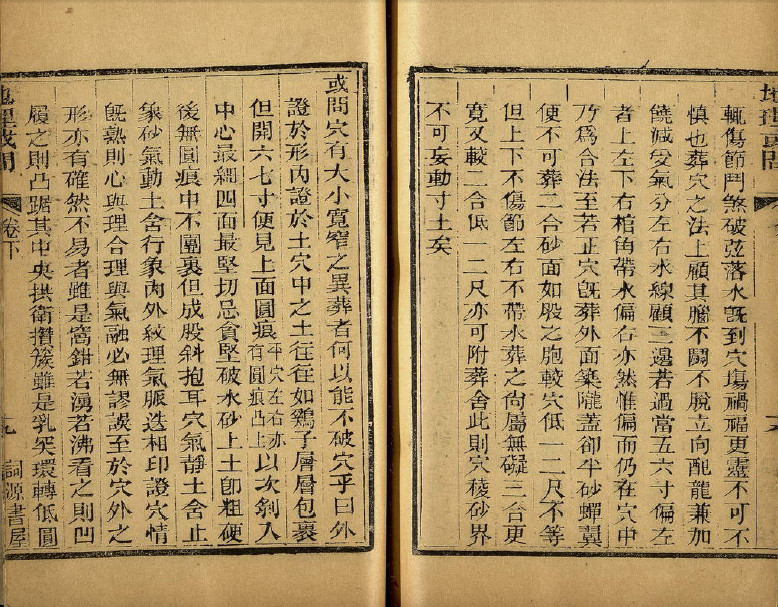 地理或問
輒傷節鬥煞破弦落水既到穴塲禍福更靈不可不
慎也葬穴之法上顧其腦不鬭不脫立向配龍兼加
饒減受氣分左右水線顧三邊若過當五六寸偏左
者上左下右棺角帶水偏右亦然惟偏而仍在穴中
乃爲合法至若正穴旣葬外面築隴蓋卻半砂蟬翼
便不可葬二合砂面如股之胞較穴低一二尺不等
但上下不傷節左右不帶水葬之尙屬無礙三合更
寬又較二合低一二尺亦可附葬舍此則穴稜砂界
不可妄動寸土矣
或問穴有大小寬窄之異葬者何以能不破穴乎曰外
證於形內證於土穴中之土往往如鷄子層層包裹
但開六七寸便見上面圓痕平穴左右亦有圓痕凸上以次剜入
中心最細四面最堅切忌貪堅破水砂上土卽粗硬
後無圓痕中不圍裹但成股斜抱耳穴氣靜土舍止
象砂氣動土舍行象內外紋理氣脈迭相印證穴情
旣熟則心與理合理與氣融必無謬誤至於穴外之
形亦有確然不易者雖是窩鉗若湧若沸看之則凹
履之則凸踞其中央拱衛攢簇雖是乳突環轉低圓
地理或問
卷下
九
詞源書屋